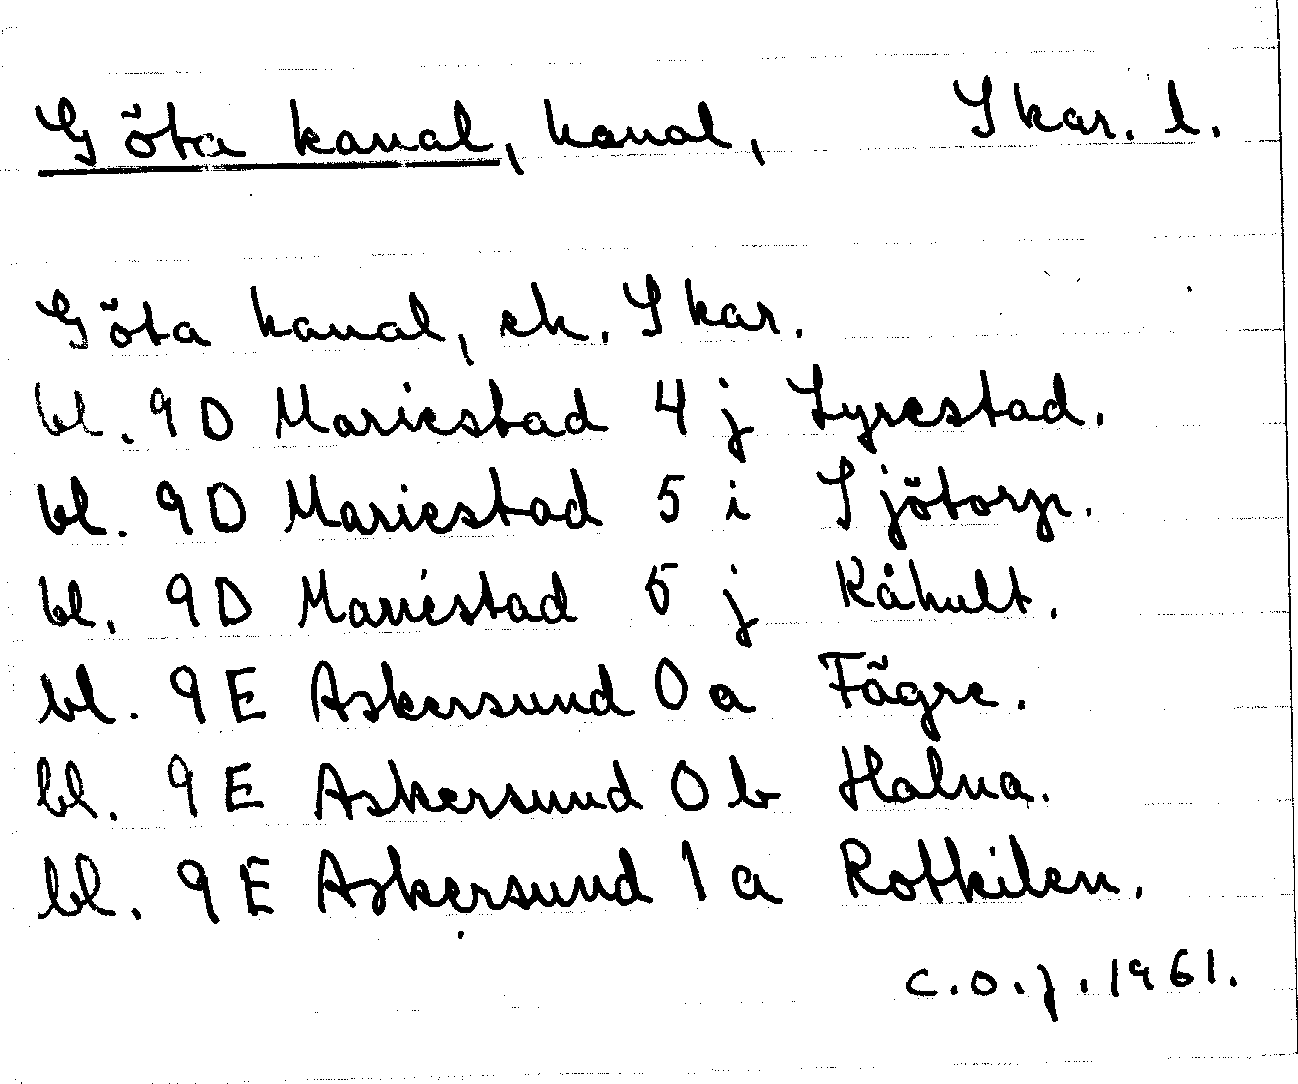 Göta kanal, kanal, Skar. l.
Göta kanal, ek. Skar.
bl. 9D Mariestad 4 j Lyrestad.
bl. 9D Mariestad 5 i Sjötorp.
bl. 9D Mariestad 5 j Råhult.
bl. 9E Askersund 0 a Fägre.
bl. 9E Askersund 0 b Halna.
bl. 9E Askersund 1 a Rotkilen.
C.O.J. 1961.